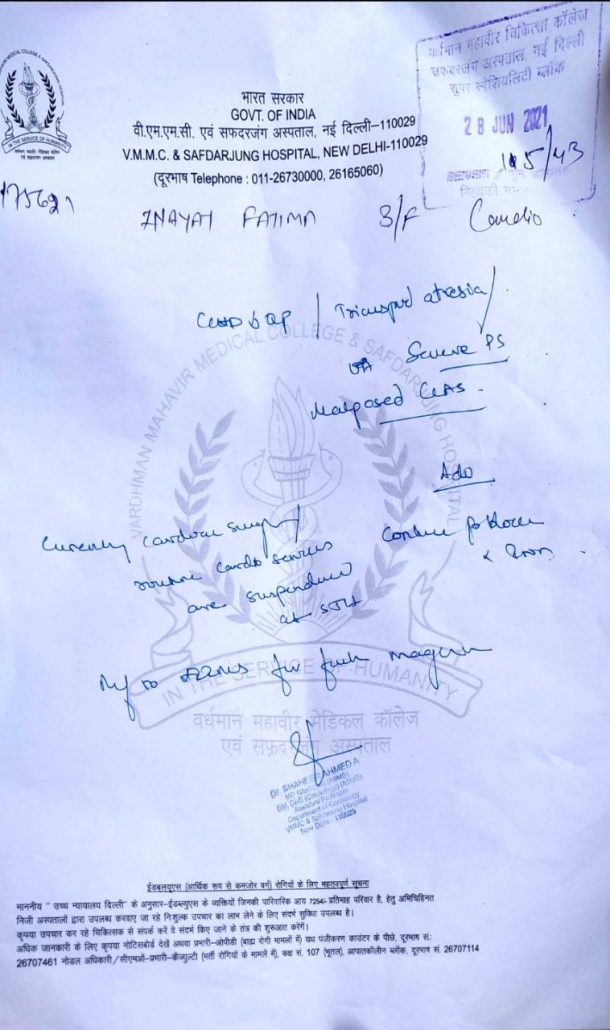 वर्धमान महावीर चिकित्सा कॉलेज
सफदरजंग अस्पताल, नई दिल्ली
सुपर स्पेशियलिटी ब्लॉक
28 JUN 2021
IN THE SERVICE OF HUMANITY
भारत सरकार
GOVT. OF INDIA
वी.एम.एम.सी. एवं सफदरजंग अस्पताल, नई दिल्ली–110029
V.M.M.C. & SAFDARJUNG HOSPITAL, NEW DELHI-110029
(दूरभाष Telephone : 011-26730000, 26165060)
INAYAT FATIMA 3/F Cardio
Tricuspid atresia/
Severe PS
Malposed GAS
Adv
Currently cardiac surgery/
routine cardio services
are suspended
at SJH
Continue
& Iron
for further
VARDHMAN MAHAVIR MEDICAL COLLEGE & SAFDARJUNG HOSPITAL
IN THE SERVICE OF HUMANITY
वर्धमान महावीर मेडिकल कॉलेज
एवं सफ़दरजंग अस्पताल
Assistant Professor
Department of Cardiology
VMMC & Safdarjung Hospital
New Delhi - 110029
ईडबलयूएस (आर्थिक रूप से कमजोर वर्ग) रोगियों के लिए महत्वपूर्ण सूचना
माननीय " उच्च न्यायालय दिल्ली" के अनुसार–ईडब्ल्यूएस के व्यक्तियों जिनकी पारिवारिक आय 7254/- प्रतिमाह परिवार है, हेतु अभिचिन्हित
निजी अस्पतालों द्वारा उपलब्ध करवाए जा रहे निःशुल्क उपचार का लाभ लेने के लिए संदर्भ सुविधा उपलब्ध है।
कृपया उपचार कर रहे चिकित्सक से संपर्क करें वे संदर्भ किए जाने के तंत्र की शुरूआत करेंगे।
अधिक जानकारी के लिए कृपया नोटिसबोर्ड देखें अथवा प्रभारी–ओपीडी (बाह्य रोगी मामलों में) पंजीकरण काउंटर के पीछे, दूरभाष सं:
26707461 नोडल अधिकारी/सीएमओ–प्रभारी–कैज्युल्टी (भर्ती रोगियों के मामले में), कक्ष सं. 107 (भूतल), आपातकालीन ब्लॉक, दूरभाष सं. 26707114